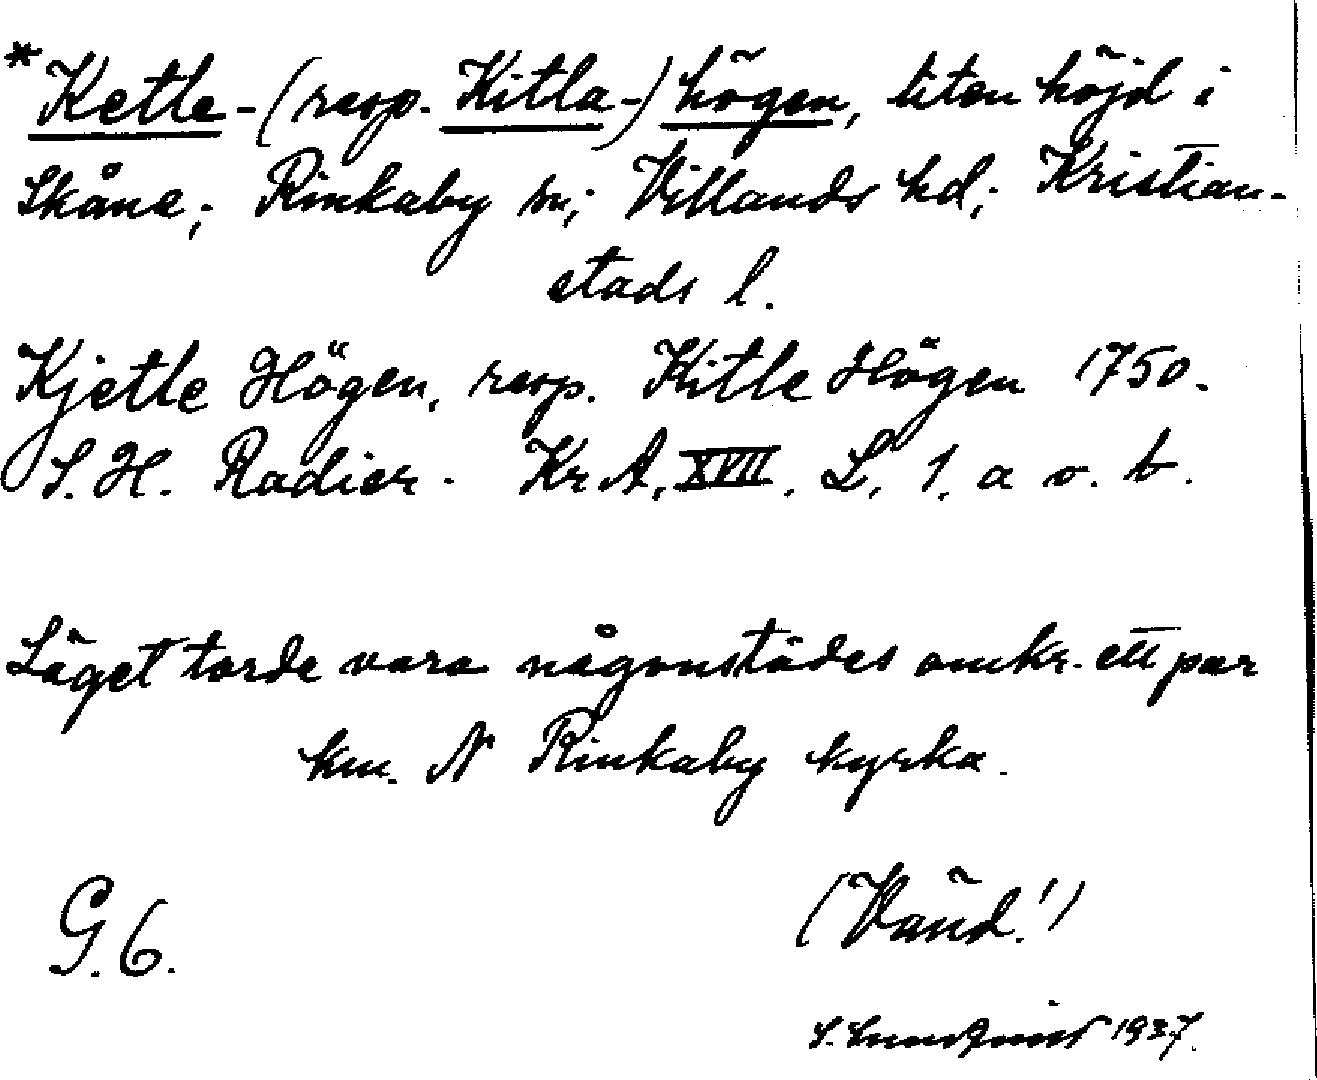 *Ketle-(resp. Kitla-)högen, liten höjd i
Skåne; Rinkaby sn; Villands hd; Kristian-
stads l.
Kjetle Högen, resp. Kitle Högen 1750.
S. H. Radier. Kr A, XVII. L, 1, a o. b.
Läget torde vara någonstädes omkr. ett par
km. N Rinkaby kyrka.
G. 6.
(Vänd!)
1937.